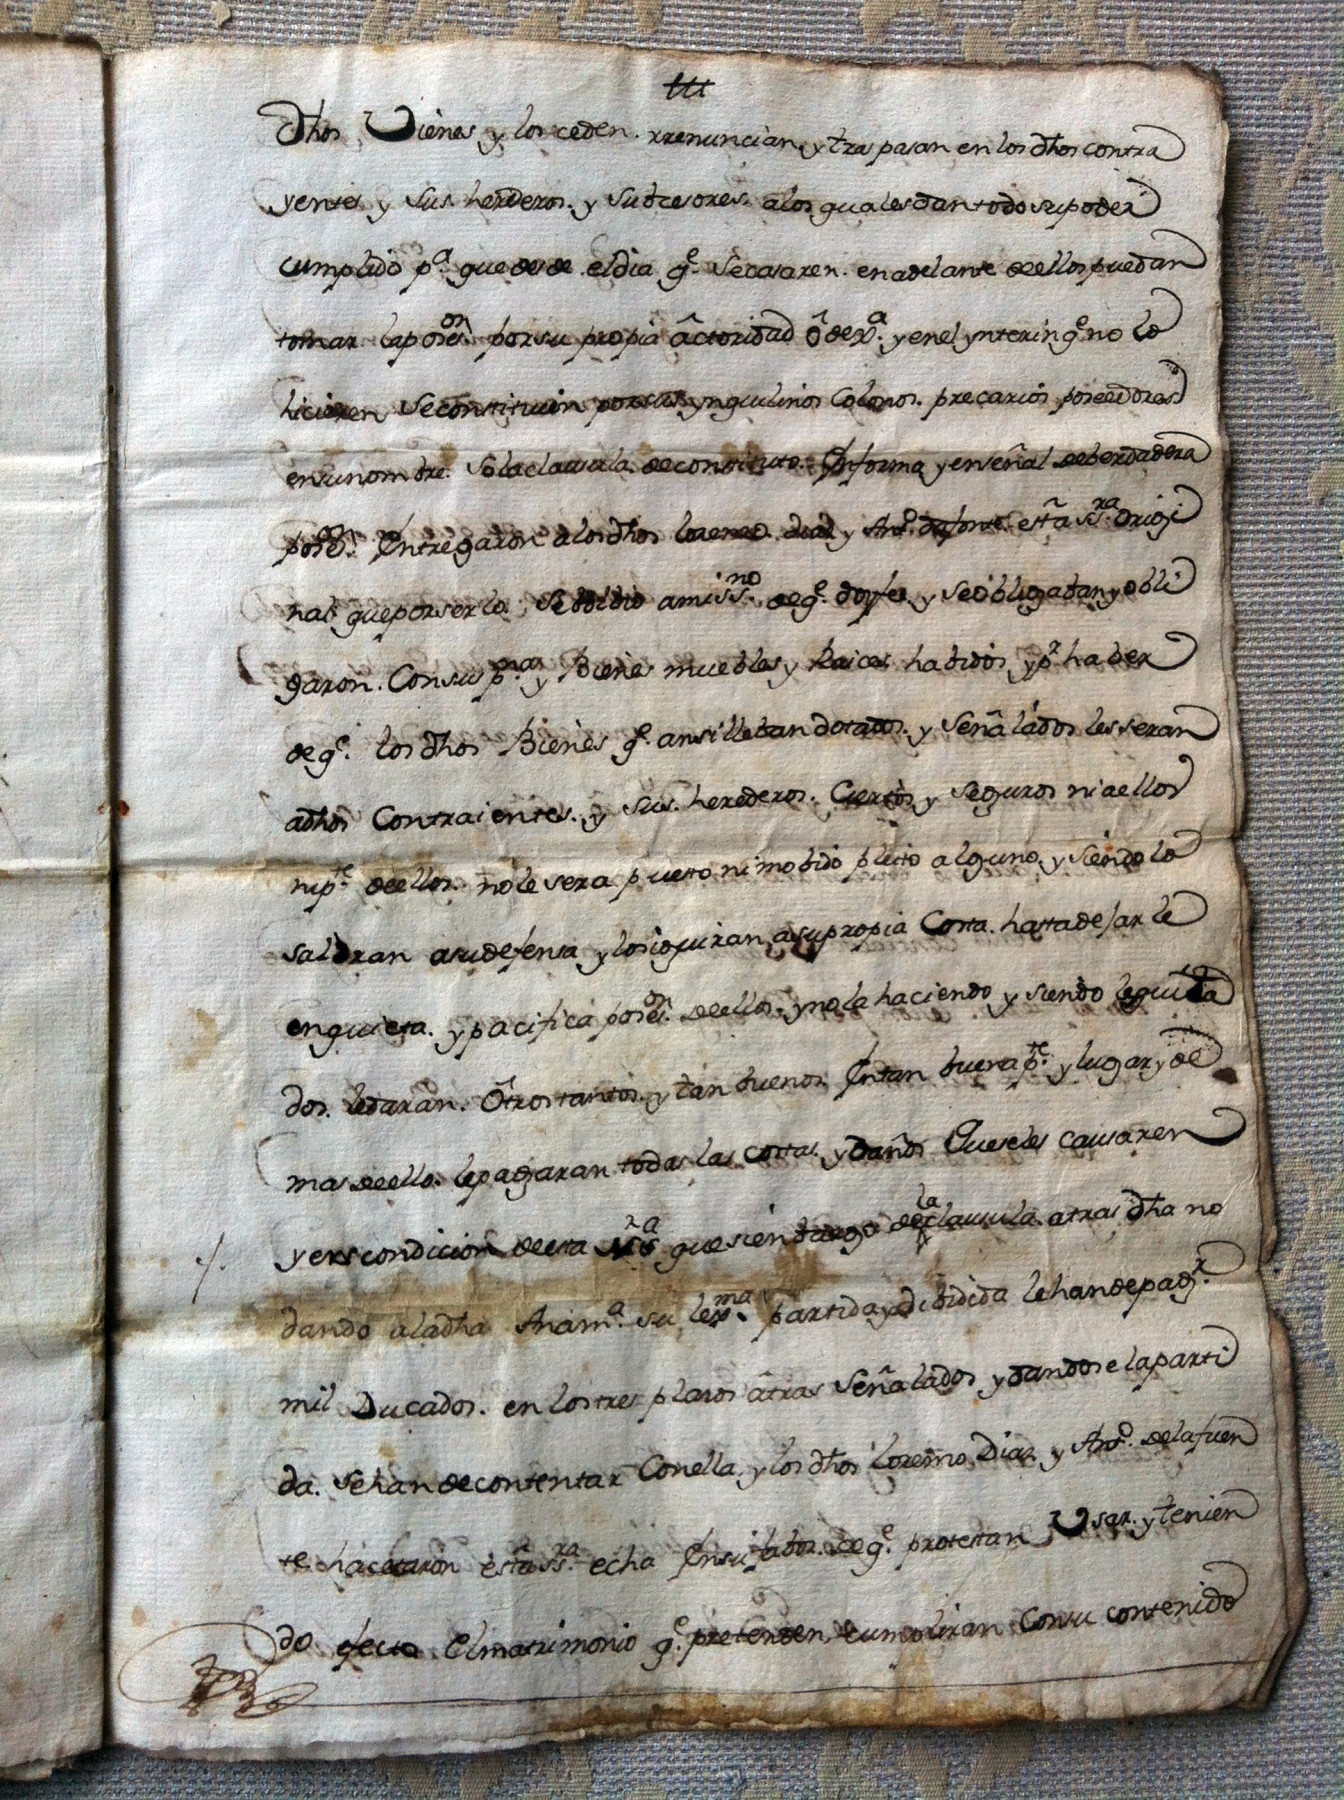 dhos Vienes y los ceden. rrenuncian, y traspasan en los dhos contra
yentes y sus herderos. y subcesores. a los quales dan todo su poder
cumplido pa. que desde el dia qe. se casaren. en adelante de ellos puedan
tomar la poson. por su propia actoridad o de xa. y en el ynterin qe no lo
hicieren se constituien por sus ynquilinos Colonos. precarios poseedores
en su nombre. so la clausula de constituto. En forma y en señal de berdadera
poson. Entregaron a los dhos Lorenzo diaz y Anto. dela fonte esta ssra origi
nal que por ser lo. se pidio a mi ssno de qe. doyfe. y se obligaban y obli
garon. Con sus pnas y Bienes muebles y Raices habidos y pr haber
de qe. los dhos Bienes qe. ansi lleban dotados. y señalados les seran
a dhos Contraientes. y sus. herederos. Ciertos y seguros ni a ellos
ni pte de ellos. no le sera puesto ni mobido pleito alguno. y siendolo
saldran a su defensa y lo siguiran, a su propia Costa. hasta dejarle
en quieta. y pacifica poson. de ellos. y no la haciendo y siendole quita
dos. le daran. otros tantos. y tan buenos En tan buena pte. y lugar y de
mas de ello. le pagaran todas las costas. y daños Que se les causaren
y ers condicion de esta ssra que sien bargo de la clausula atras dha no
dando a la dha Ana ma. su lexma. partida y dibidida le han de pagr.
mil Ducados. en los tres plaços atras señalados y dandose la parti
da. se han de contentar Con ella. y los dhos Lorenzo Diaz y Anto. de la fuen
te hacetaron esta ssra. echa En su fabor. de qe protestan Usar. y tenien
do efecto El matrimonio qe. pretenden cumpliran Con su contenido